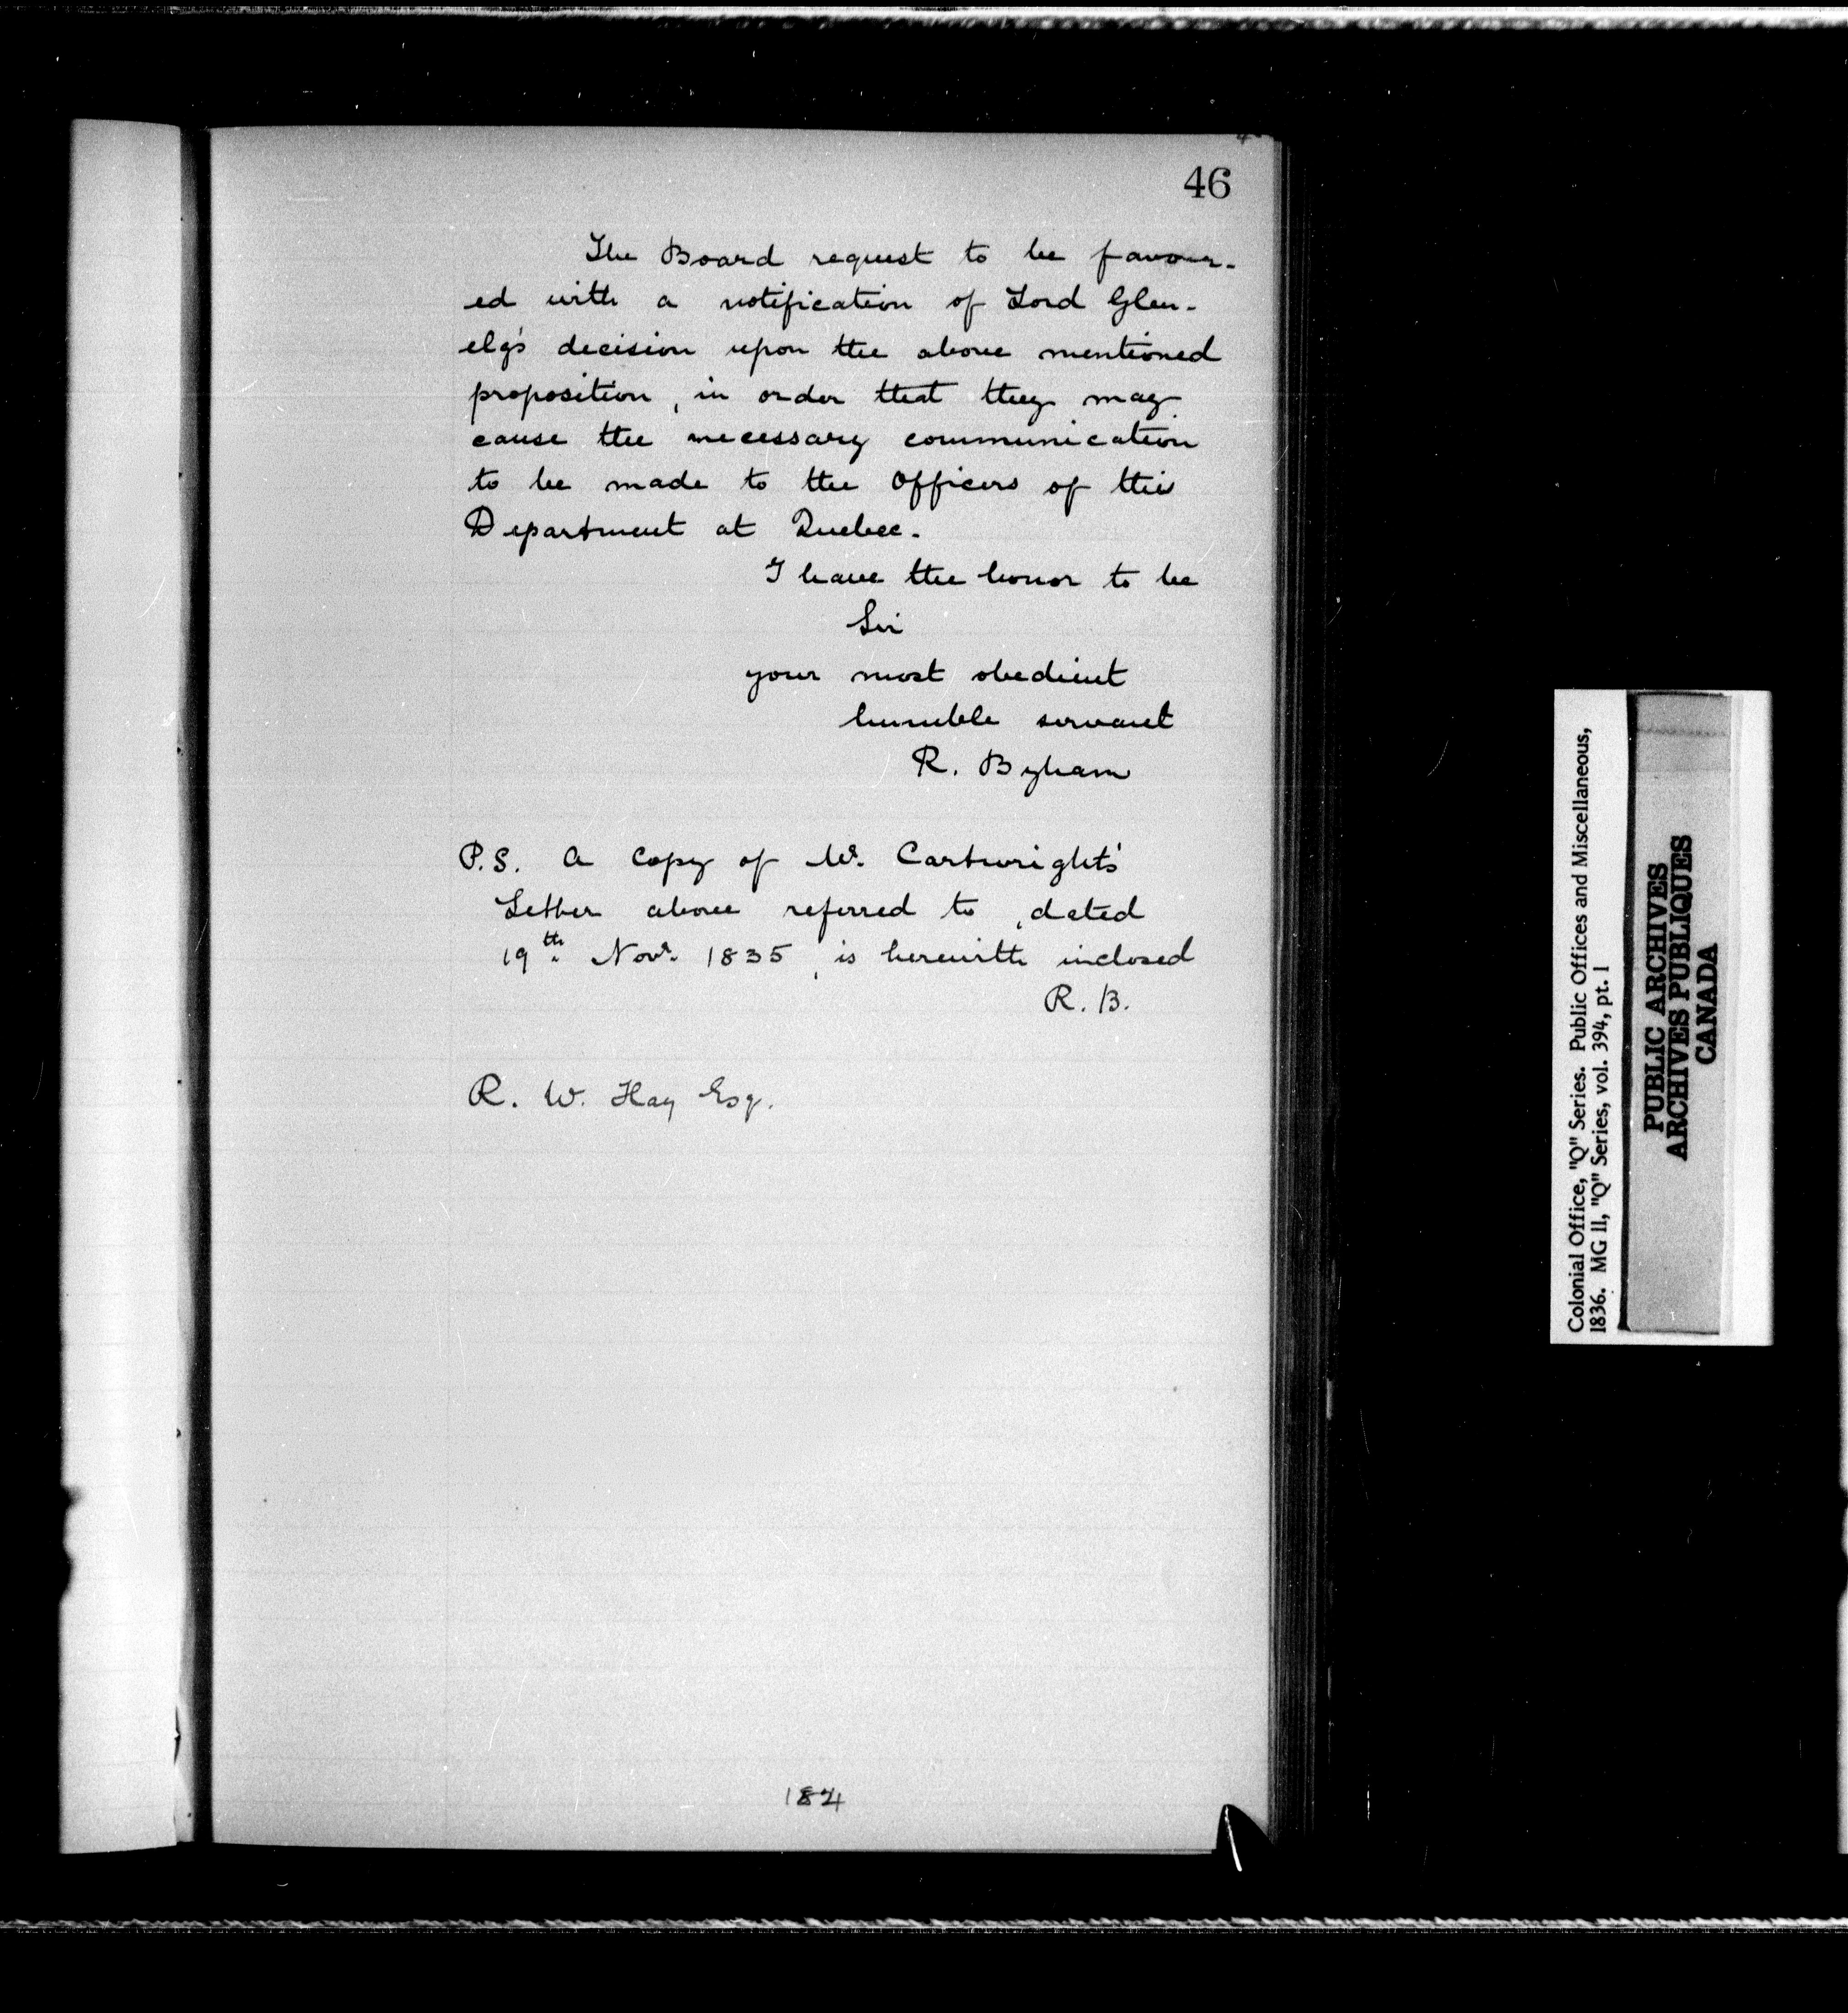 46
The Board request to be favour-
ed with a notification of Lord Glen-
elg's decision upon the above mentioned
proposition, in order that they may
cause the necessary communication
to be made to the Officers of this
Department at Quebec.
I have the honor to be
Sir
your most obedient
humble servant
R. Byham
P.S. A Copy of Mr. Cartwright's
Letter above referred to, dated
19th. Novr. 1835, is herewith inclosed
R. B.
R. W. Hay Esq.
184
Colonial Office, "Q" Series. Public Offices and Miscellaneous,
1836. MG 11, "Q" Series, vol. 394, pt. 1
PUBLIC ARCHIVES
ARCHIVES PUBLIQUES
CANADA